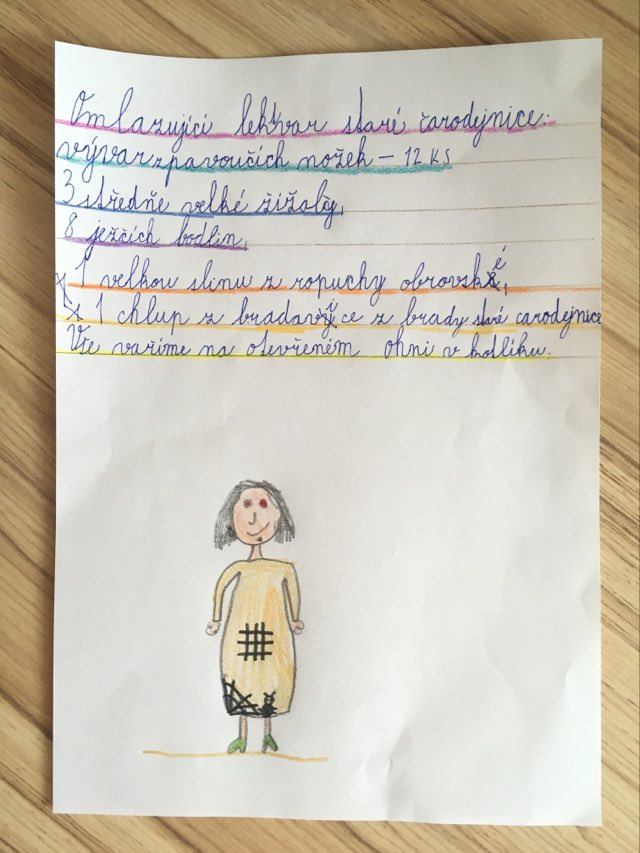 Omlazující lektvar staré čarodejnice:
vývar z pavoučích nožek – 12 KS
3 středně velké žížaly,
8 ježčích bodlin,
x 1 velkou slinu z ropuchy obrovské,
x 1 chlup z bradavice z brady staré carodejnice
Vše vaříme na otevřeném ohni v kotlíku.